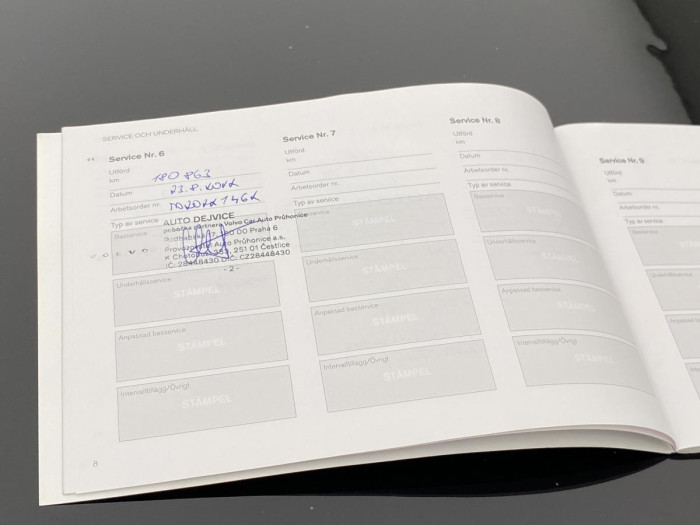 SERVICE OCH UNDERHÅLL
Service Nr. 6
Utförd
km
180 863
Datum
23. 8.
Arbetsorder nr.
Typ av service
AUTO DEJVICE
pobočka partnera Volvo Car Auto Průhonice
00 Praha 6
Auto Průhonice a.s.
251 01 Čestlice
IČ: 28448430 DIČ: CZ28448430
- 2 -
Basservice
Underhållsservice
STÄMPEL
Anpassad basservice
STÄMPEL
Intervalltillägg/Övrigt
STÄMPEL
8
Service Nr. 7
Utförd
km
Datum
Arbetsorder nr.
Typ av service
STÄMPEL
Underhållsservice
STÄMPEL
Anpassad basservice
STÄMPEL
Intervalltillägg/Övrigt
STÄMPEL
Service Nr. 8
Utförd
km
Datum
Arbetsorder nr.
Typ av service
Basservice
STÄMPEL
Underhållsservice
STÄMPEL
Anpassad basservice
STÄMPEL
Intervalltillägg/Övrigt
Service Nr. 9
Utförd
km
Datum
Arbetsorder nr.
Typ av service
Basservice